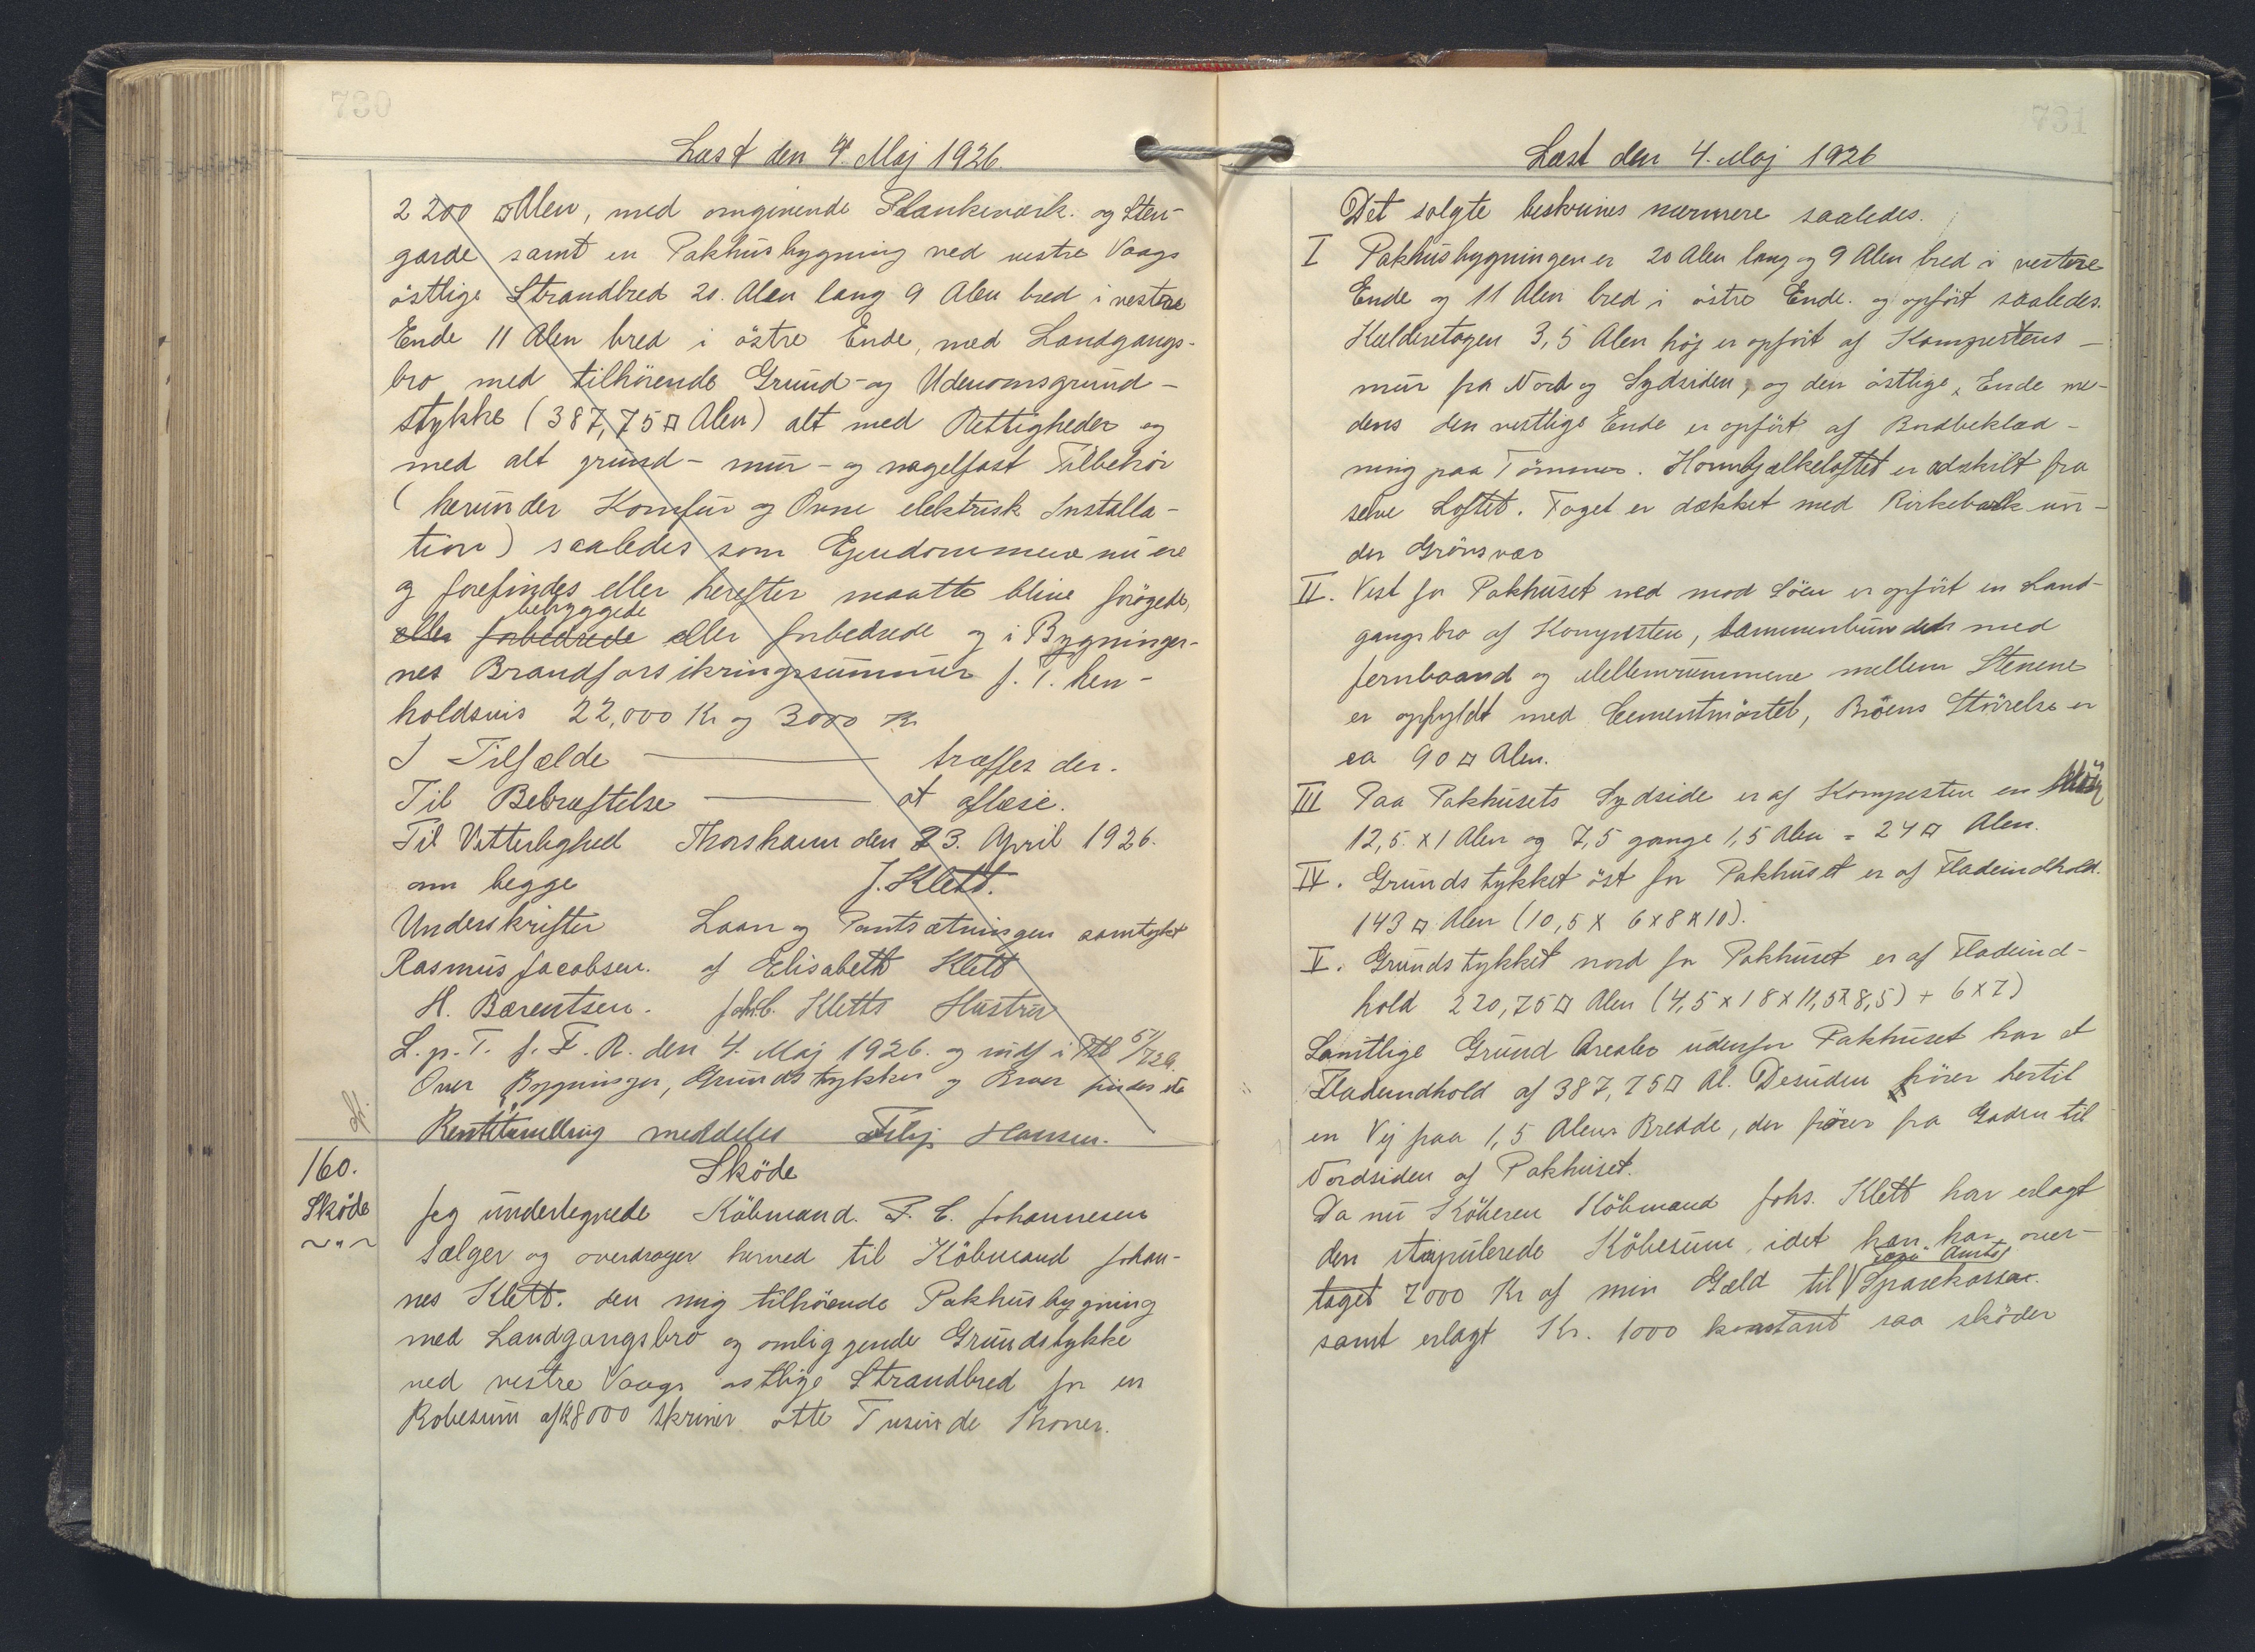 730
Læst den 4. Maj 1926.
2200 □ Alen, med omgivende Plankeværk. og Sten-
gærde samt en Pakhusbygning ved vestre Vaags
östlige Strandbred 20. Alen lang 9 Alen bred i vestre
Ende 11 Alen bred i östre Ende, med Landgangs-
bro med tilhörende Grund- og Udenomsgrund-
stykke (387,75 □ Alen) alt med Rettigheder og
med alt grund- mur- og nagelfast Tilbehör
(herunder Komfur og Ovne elektrisk Installa-
tion) saaledes som Ejendommene nu ere
og forefindes eller herefter maatte blive forögede,
bebyggede
eller forbedrede eller forbedrede og i Bygninger-
nes Brandforsikringssummer p. T. hen-
holdsvis 22,000 Kr og 3000 Kr
I Tilfælde ——— træffes der.
Til Bekræftelse ——— at aflæse.
Til Vitterlighed Thorshavn den 23. April 1926.
om begge J. Klett.
Underskrifter Laan og Pantsætningen samtykket
Rasmus Jacobsen. af Elisabeth Klett
H. Bærentsen. Johs. Kletts Hustru
L. p. T. f. F. R. den 4. Maj 1926. og indf i
Over Bygninger, Grundstykker og Broer findes
meddeles Filip Hansen.
160. Sköde
Sköde Jeg undertegnede Köbmand. P. C. Johannesen
~"~ sælger og overdrager herved til Köbmand Johan-
nes Klett. den mig tilhörende Pakhusbygning
med Landgangsbro og omliggende Grundstykke
ved vestre Vaags östlige Strandbred for en
Kobesum af K8000 skriver otte Tusinde Kroner.
731
Læst den 4. Maj 1926
Det solgte beskrives nærmere saaledes.
I Pakhusbygningen er 20 Alen lang og 9 Alen bred i vestre
Ende og 11 Alen bred i östre Ende. og opfört saaledes.
Kælderetagen 3,5 Alen höj er opfört af Kampestens-
mur fra Nord og Sydsiden, og den östlige, Ende me-
dens den vestlige Ende er opfört af Bordbeklæd-
ning paa Tömmer. Hovnbjælkeloftet er adskilt fra
selve Loftet. Taget er dækket med Birkebark un-
der Grönsvær
II. Vest for Pakhuset ned mod Söen er opfört en Land-
gangsbro af Kampesten, sammenbundet med
Jernbaand og Mellemrummene mellem Stenene
er opfyldt med Cementmörtel, Bröens Störrelse er
ca 90 □ Alen.
III Paa Pakhusets Sydside er af Kampesten en
12,5 x 1 Alen og 7,5 gange 1,5 Alen = 24 □ Alen.
IV. Grundstykket öst for Pakhuset er af Fladeindhold.
143 □ Alen (10,5 x 6 x 8 x 10).
V. Grundstykket nord for Pakhuset er af Fladeind-
hold 220,75 □ Alen (4,5 x 18 x 11,5 x 8,5) + 6 x 7)
Samtlige Grund Arealer udenfor Pakhuset har et
Fladeindhold af 387,75 □ Al. Desuden hörer hertil
en Vej paa 1,5 Alens Bredde, der förer fra Gaden til
Nordsiden af Pakhuset.
Da nu Köberen Köbmand Johs. Klett har erlagt
den stipulerede Köbesum, idet han har over-
Færö Amts
taget 7000 Kr af min Gæld til Sparekasse.
samt erlagt Kr. 1000 kontant saa sköder